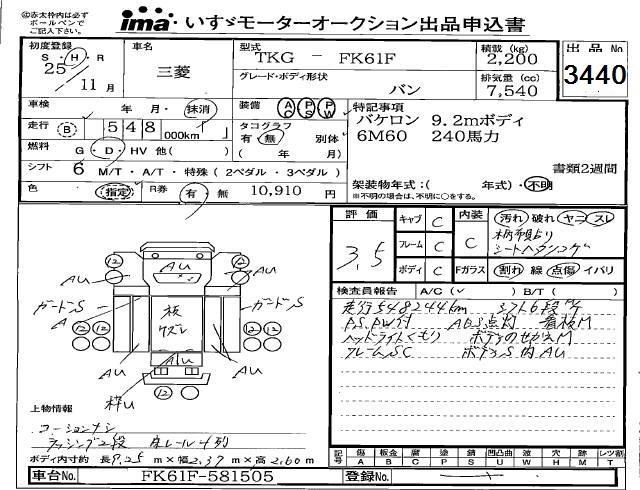 ◎赤太枠内は必ず
ボールペンで
ご記入下さい。
ima いすゞモーターオークション出品申込書
初度登録
S・H・R
25
11月
車名
三菱
型式
TKG － FK61F
グレード・ボディ形状
バン
積載(kg)
2,200
排気量(cc)
7,540
出品No
3440
車検
年 月・抹消
装備
AC PS PW
走行 (B) 548 000km
タコグラフ
有・無 別体
(年 月)
燃料 G・D・HV 他( )
シフト 6 M/T・A/T・特殊(2ペダル・3ペダル)
色 指定 R券 有・無 10,910 円
特記事項
バケロン 9.2mボディ
6M60 240馬力
書類2週間
架装物年式:( 年式)・不明
※不明の場合は、不明に○をする。
評価
3.5
キャブ C
フレーム C
ボディ C
内装 C
Fガラス S
汚れ 破れ ヤニ スレ
シートヘタリコゲ
割れ 線 点傷 イバリ
検査員報告 A/C(✓ ) B/T( )
走行548244km
P.S.PW付 ABS点灯 看板M
ヘッドライトくもり ボデーのせかえM
フレームSC ボデーS凹AU
12 12
AU AU AU
ガードーS ガードーS
A A
板
ケズレ
12 12
AU AU AU
枠U
12
上物情報
コーションナシ
ラッシング2段 床レール4列
ボディ内寸約 長9.25m×幅2.37m×高2.60m
記号
傷 板金 腐 塗 錆 凹凸曲 波 穴 跡 レツ割
A B C P S U W H M T
車台No. FK61F-581505
登録No.